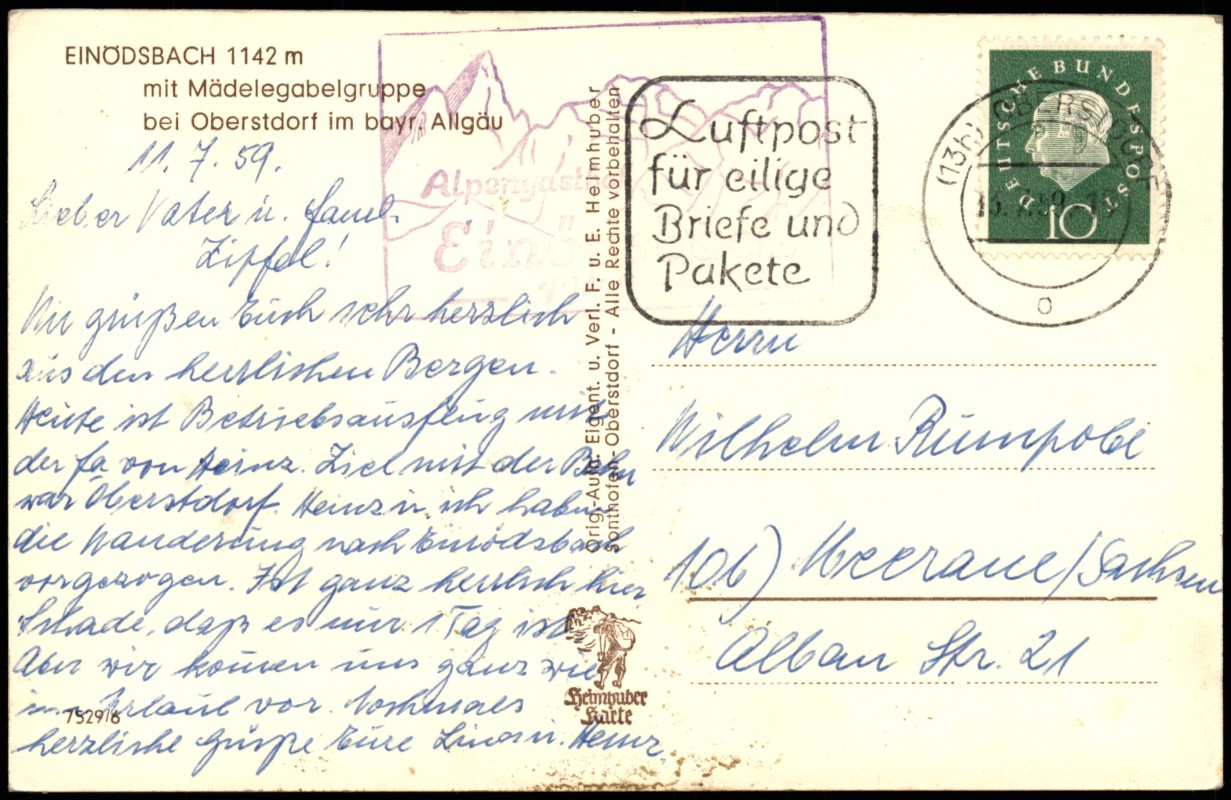 EINÖDSBACH 1142 m
mit Mädelegabelgruppe
bei Oberstdorf im bayr. Allgäu
11.7.59.
Lieber Vater u. Faml.
Zipfel!
Wir grüßen Euch sehr herzlich
aus den herrlichen Bergen.
Heute ist Betriebsausflug mit
der Fa von Heinz. Ziel mit der Bahn
war Oberstdorf. Heinz u. ich haben
die Wanderung nach Einödsbach
vorgezogen. Ist ganz herrlich hier
Schade, daß es nur 1 Tag ist.
Aber wir kommen uns ganz wie
im Urlaub vor. Nochmals
herzliche Grüße Eure Lina u. Heinz
7529/6
Alpengasth
Einö
Orig.-Aufn. Eigent. u. Verl. F. u. E. Heimhuber
Sonthofen-Oberstdorf - Alle Rechte vorbehalten
Heimhuber
Karte
Luftpost
für eilige
Briefe und
Pakete
(13b) OBERSTDORF
DEUTSCHE BUNDESPOST
10
Herrn
Wilhelm
10b) Meerane/Sachsen
Alban Str. 21